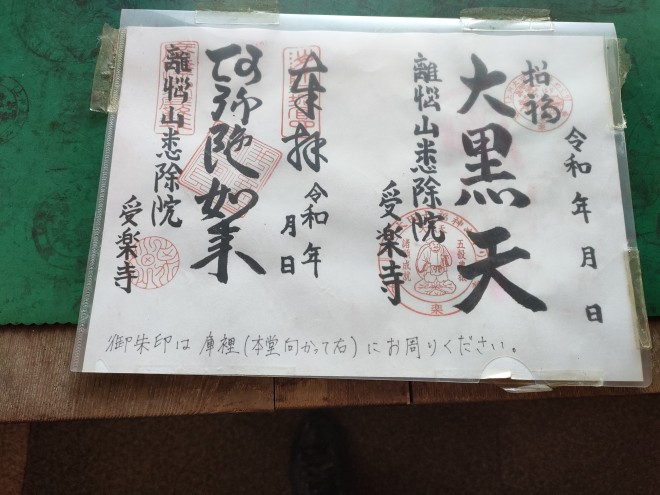 招福
令和 年 月 日
大黒天
離悩山悉除院
受楽寺
奉拝
令和 年
月 日
阿弥陀如来
離悩山悉除院
受楽寺
御朱印は庫裡(本堂向かって右)にお周りください。